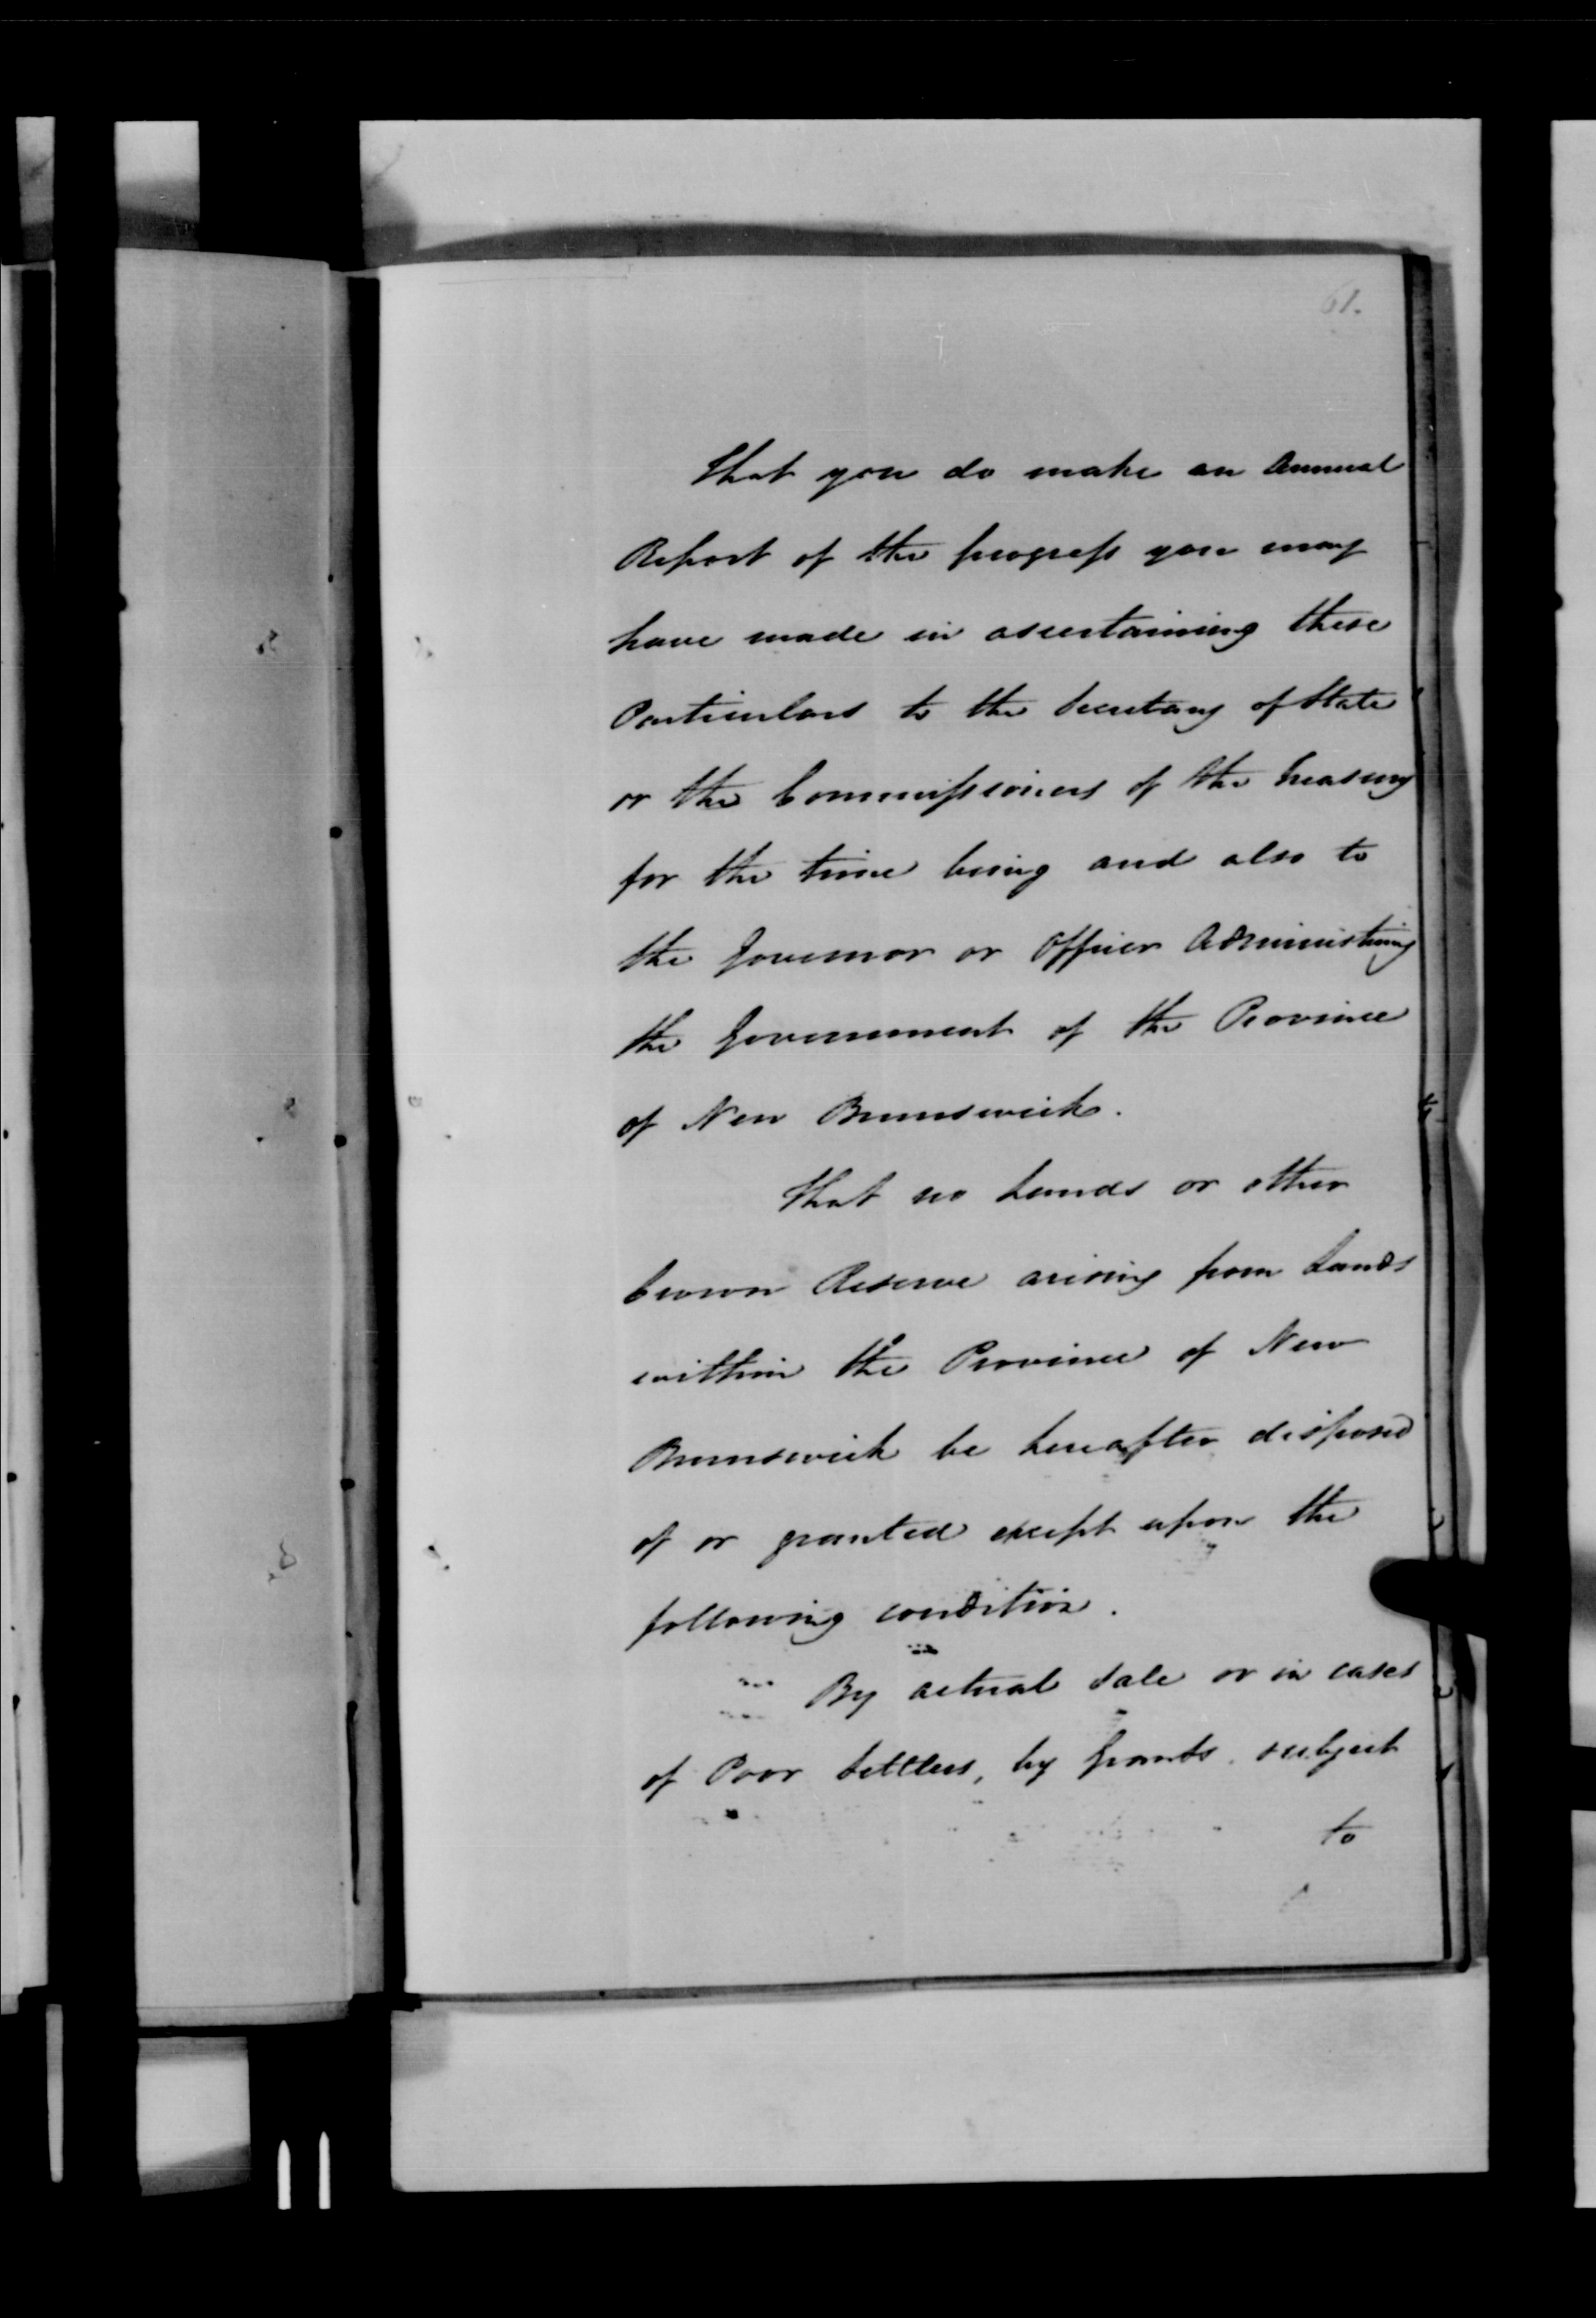 61.
That you do make an Annual
Report of the progress you may
have made in ascertaining these
Particulars to the Secretary of State
or the Commissioners of the Treasury
for the time being and also to
the Governor or Officer Administering
the Government of the Province
of New Brunswick.
That no Lands or other
Crown Reserve arising from Lands
within the Province of New
Brunswick be hereafter disposed
of or granted except upon the
following condition.
By actual Sale or in cases
of Poor Settlers, by Grants subject
to